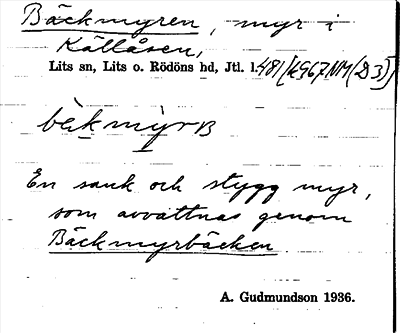 Bäckmyren, myr i
Källåsen,
Lits sn, Lits o. Rödöns hd, Jtl. l.
bèkmỳrB
En sank och stygg myr,
som avvattnas genom
Bäckmyrbäcken
A. Gudmundson 1936.